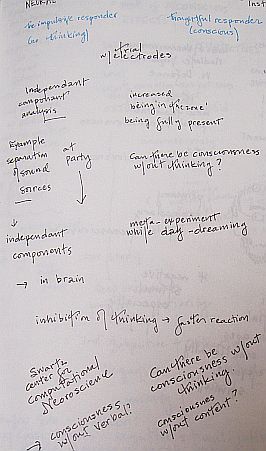 NEURAL
Inst
be impulsive responder
(no thinking)
thoughtful responder
(conscious)
w/ electrodes
Independant
component
analysis
increased
being in the zone'
being fully present
Example
separation
of sound
sources
at
party
Can there be consciousness
w/out thinking?
↓
independant
components
meta-experiment
while day-dreaming
→ in brain
inhibition of thinking → faster reaction
Swartz
center for
computational
Neuroscience
Can there be
consciousness w/out
thinking
→ consciousness
w/out verbal?
consciousness
w/out content?